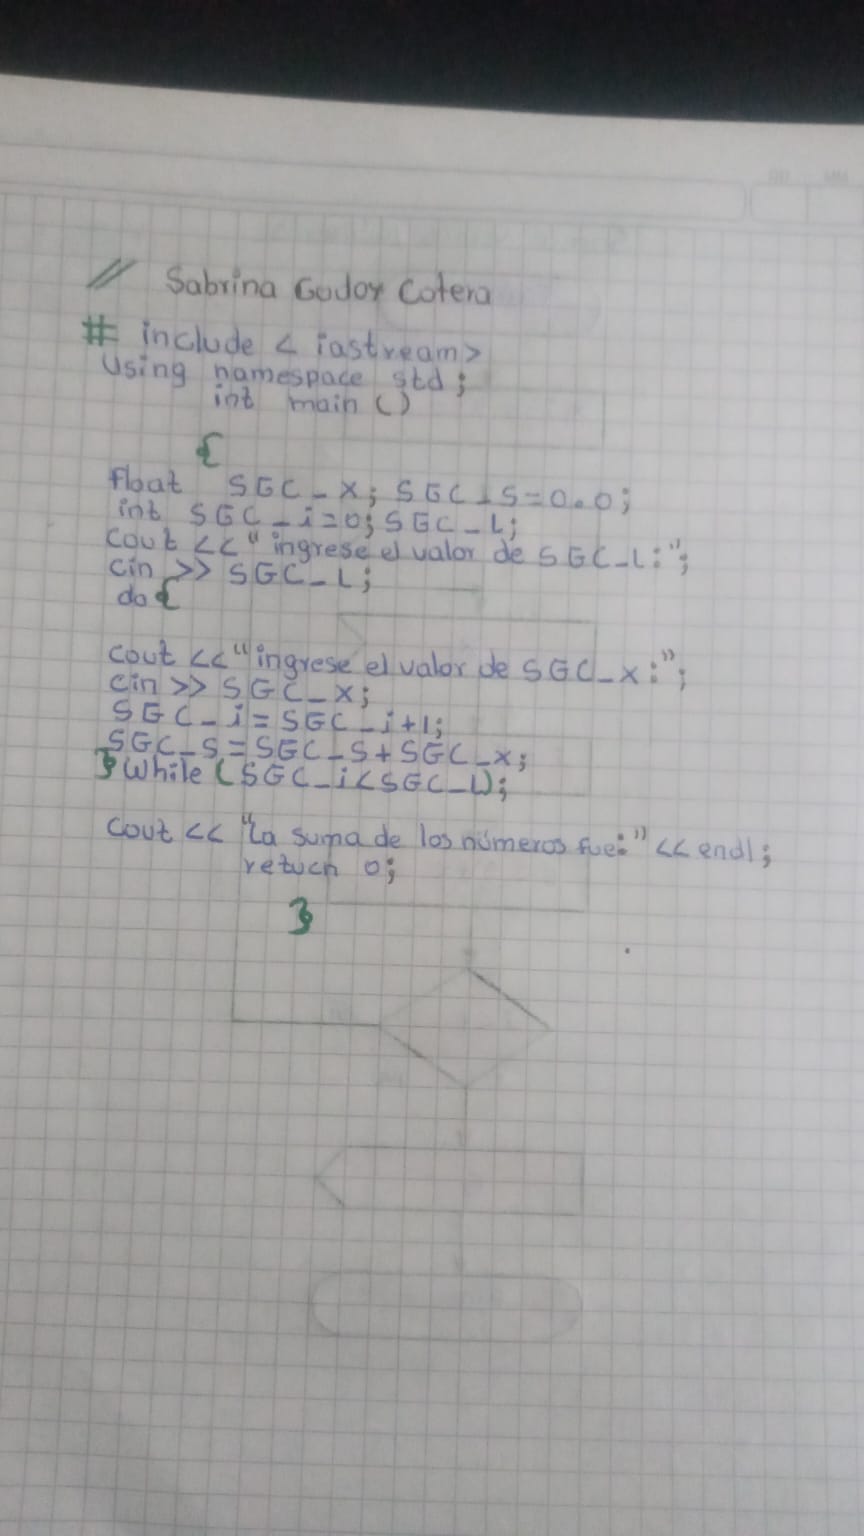 // Sabrina Godoy Cotera
# include < iastream>
Using namespace std;
int main ()
{
Float SGC_x; SGC_S=0.0;
int SGC_i=0; SGC_L;
cout <<"ingrese el valor de SGC_L:";
cin >> SGC_L;
do{
cout <<"ingrese el valor de SGC_x:";
cin >> SGC_x;
SGC_i=SGC_i+1;
SGC_S=SGC_S+SGC_x;
}While (SGC_i<SGC_L);
cout << "La suma de los números fue:" << endl;
retuch 0;
}